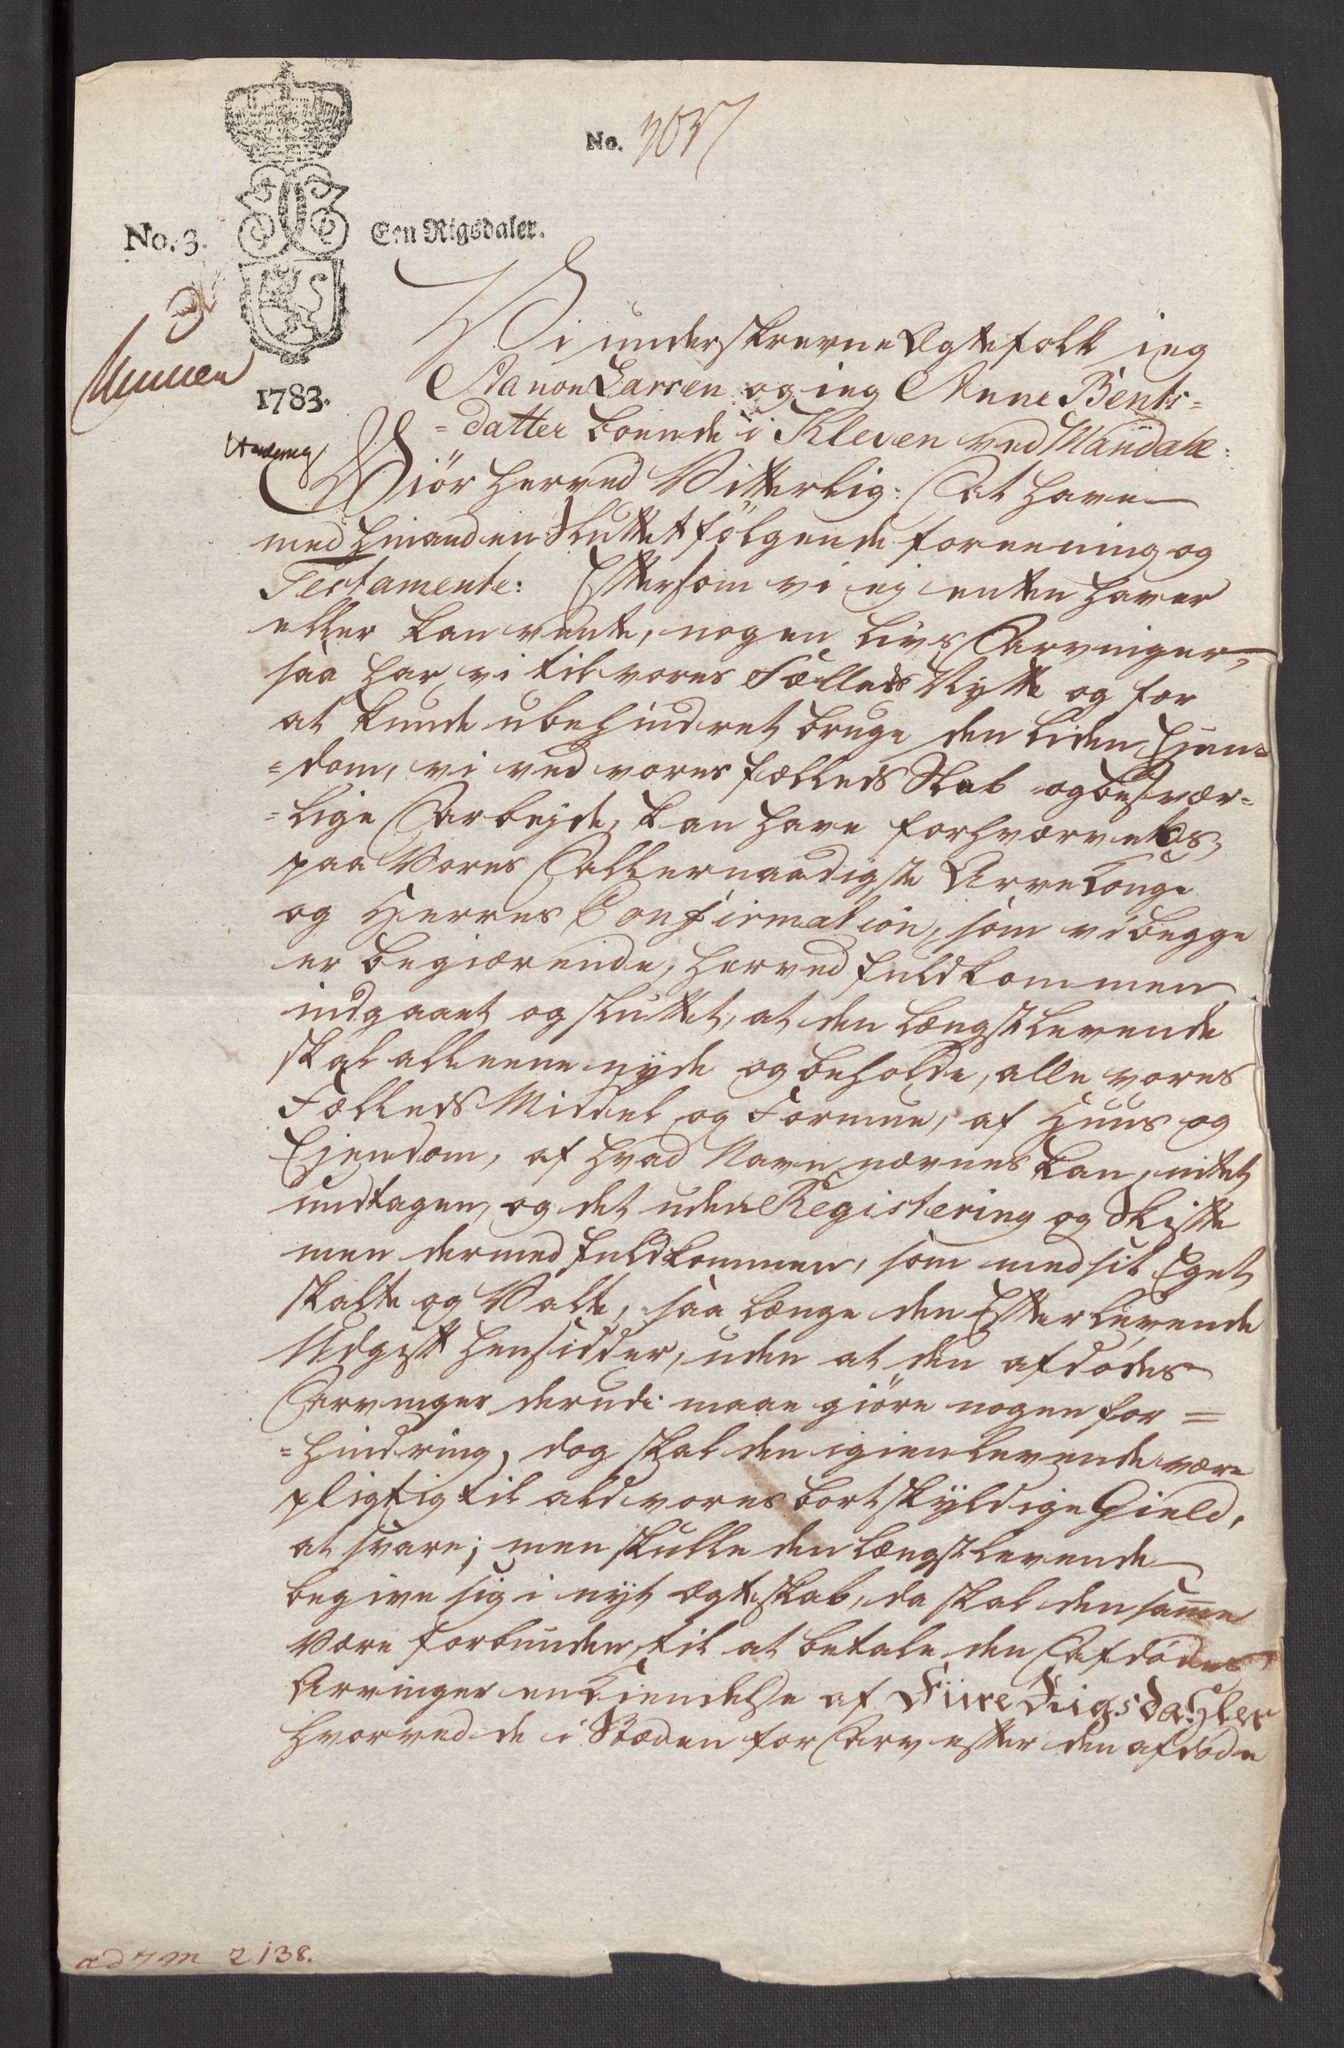 No. 2057
No. 3.
Een Rigsdaler.
1783.
Wi underskrevne Ægtefolk jeg
Aanon Larsen og jeg Anne Bents=
=datter boende i Kleven ved Mandahl:
Giör herved Vitterlig: At have
med hinanden Sluttet fölgende foreening og
Testamente: Eftersom vi ej enten haver
eller kan vente, nogen Livs Arvinger,
saa har vi til vores Fælleds Nytte og for
at kunde ubehindret bruge den liden Ejen=
=dom, vi ved vores fælleds Skab og besvær=
=lige Arbejde, kan have forhværvet os,
paa Vores Allernaadigste Arve Konge
og Herres Confirmation, som vi begge
er begiærende, herved fuldkommen
indgaaet og sluttet, at den Længstlevende
skal alleene nyde og beholde, alle vores
Fælleds Middel og Formue, af Huus og
Ejendom, af hvad Navn nævnes kan, intet
undtagen, og det uden Registering og Skifte
men dermed fuldkommen, som med sit Eget
skalte og Valte, saa længe den Efterlevende
Udgift hensidder, uden at den afdödes
Arvinger derudi maae giöre nogen for=
=hindring, dog skal den igienlevende være
pligtig til ald vores bortskyldige Gield,
at svare; men skulle den Længstlevende
begive sig i nyt Ægteskab, da skal den samme
være forbunden, til at betale den Afdödes
Arvinger en Kiendelse af Fiire Rigsdahler
hvorved de i Stæden for Arv efter den afdöde
ad 7 M 2138.